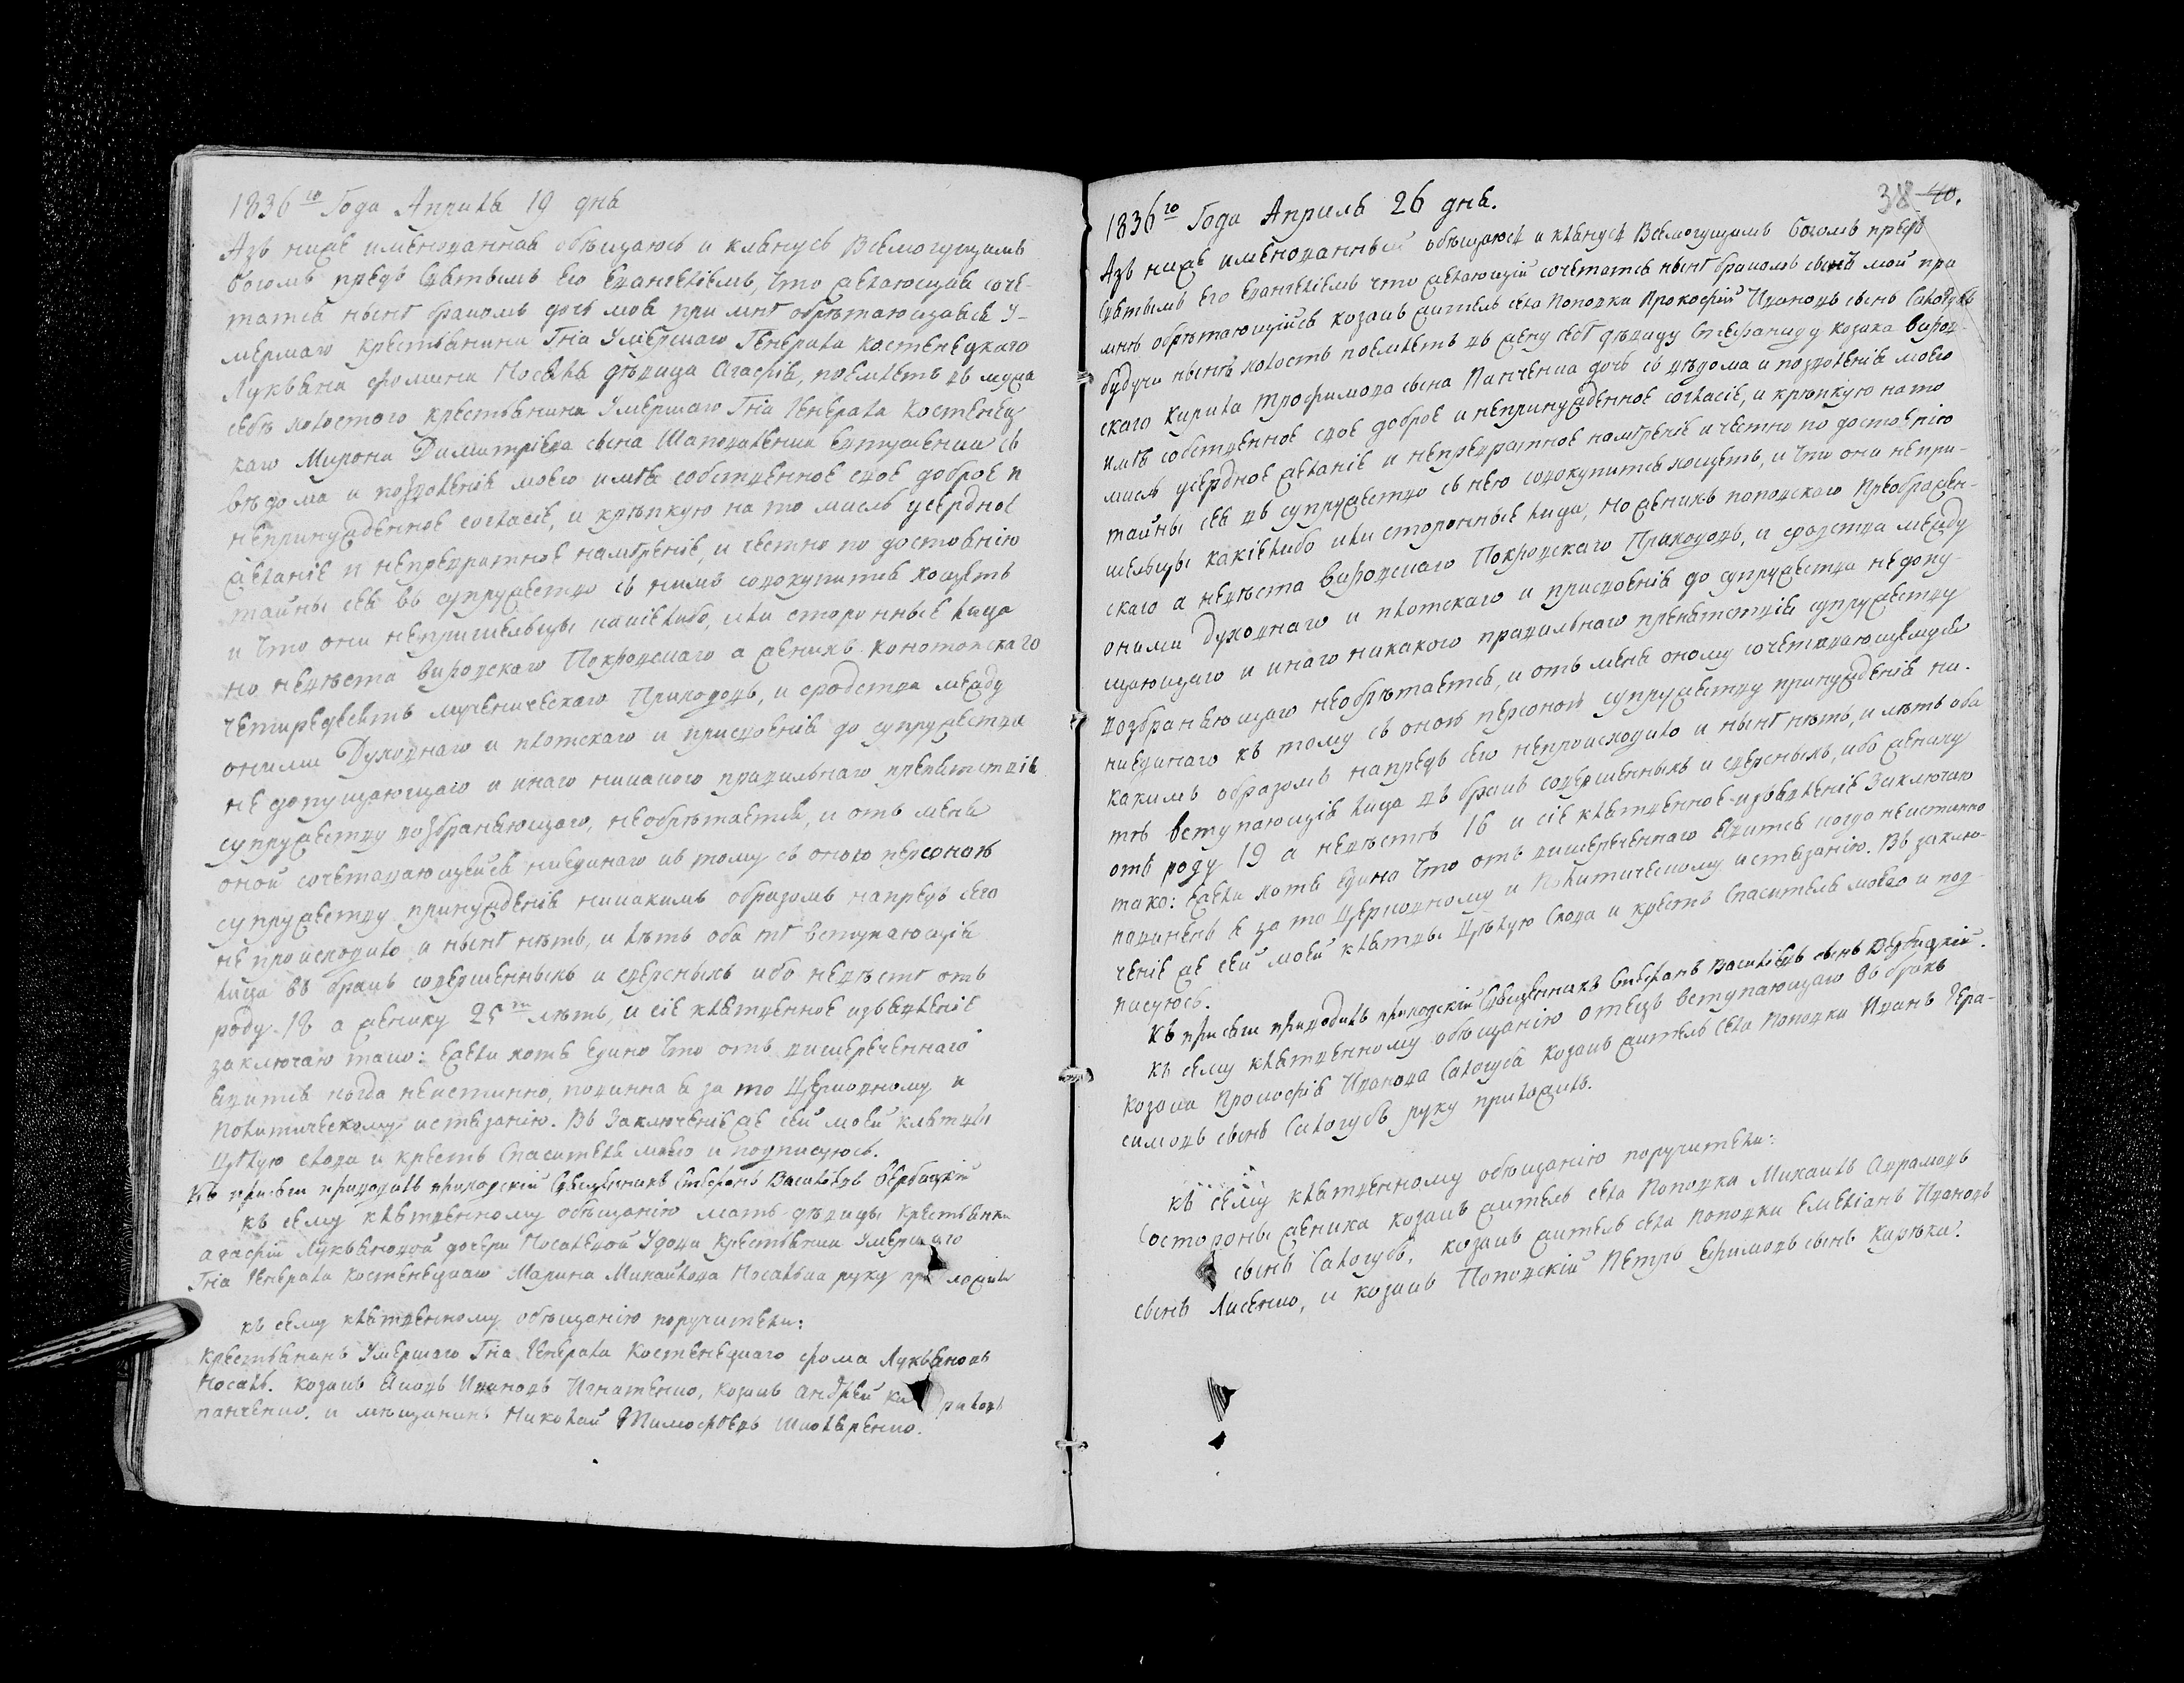 1836го Года Априля 19 дня
Азъ ниже именованная обѣщаюсь и клянусь Всемогущимъ
Богомъ предъ святымъ его евангеліемъ, что желающая соче-
татся нынѣ бракомъ дочь моя при мнѣ обрѣтающаяся У-
мершаго крестьянина Гна Умершаго Генерала Костенецкаго
Лукьяна Фомина Носаля дѣвица Агафія, поемлетъ въ мужа
себѣ холостого крестьянина Умершаго Гна Генерала Костенец
каго Мирона Димитріева сына Шаповаленка Евтушенка съ
вѣдома и позволенія моего имѣя собственное свое доброе и
непринужденное согласіе, и крѣпкую на то мисль усердное
желаніе и непревратное намѣреніе, и честно по достоянію
тайны сея въ супружество съ нимъ совокупится хощетъ
и что они непришельцы какіелибо, или сторонные лица
но невѣста вировского Покровскаго а женихъ конотопскаго
четиредесять мученическаго Приходовъ, и сродства между
оними Духовнаго и плотскаго и присвоенія до супружества
не допущающаго и инаго никакого правильнаго препятствія
супружеству возбраняющаго, необрѣтается, и отъ мене
оной сочетавающейся ниединаго къ тому съ оною персоною
супружеству принужденія никакимъ образомъ напредъ сего
не происходило и нынѣ нѣтъ, и лѣтъ оба тѣ вступающія
лица въ бракъ совершенныхъ и сверсныхъ ибо невѣстѣ отъ
роду 18 а жениху 25ть лѣтъ, и сіе клятвенное изъявленіе
заключаю тако: Ежели хотя едино что отъ вишереченнаго
явится когда неистинно, повинна я за то Церковному и
Политическому истязанію. Въ Заключеніе же сей моей клятвы
цѣлую слова и крестъ Спасителя моего и подписуюсь.
Къ присяги приводилъ приходскій Священникъ Стефанъ Василіевъ Вербицкій
къ сему клятвенному обѣщанію мать дѣвицы крестьянки
агафіи Лукьяновой дочери Носалевой Удова крестьянка Умершаго
Гна Генерала Костенецкаго Марина Михайлова Носалька руку приложила
къ сему клятвенному обѣщанію поручители:
крестьянинъ Умершаго Гна Генерала Костенецкаго Фома Лукьяновъ
Носаль. козакъ Яковъ Ивановъ Игнатенко, козакъ андрей Кириловъ
панченко. и мѣщанинъ Николай Тимофѣевъ Шкляренко.
38 40.
1836го Года Априля 26 дня.
Азъ ниже именованный обѣщаюся и клянуся Всемогущимъ Богомъ предъ
святымъ Его Евангеліемъ что желающій сочетатся нынѣ бракомъ сынъ мой при
мнѣ обрѣтающійся козакъ житель села Поповки Прокофій Ивановъ сынъ Салогубъ
будучи нынѣ холостъ поемлетъ въ жену себѣ дѣвицу Стефаниду козака виров-
скаго Кирила Трофимова сына Панченка дочь съ вѣдома и позволенія моего
имѣя собственное свое доброе и непринужденное согласіе, и крѣпкую на то
мисль усердное желаніе и непревратное намѣреніе и честно по достоянію
тайны сея въ супружество съ нею совокупится хощетъ, и что они непри-
шельцы какіелибо или сторонные лица, но женихъ поповскаго Преображен-
скаго а невѣста вировскаго Покровскаго Приходовъ, и сродства между
оними духовнаго и плотскаго и присвоенія до супружества недопу-
щающаго и инаго никакого правильнаго препятствія супружеству
возбраняющаго необрѣтается, и отъ мене оному сочетавающемуся
ниединаго къ тому съ оною персоною супружеству принужденія ни-
какимъ образомъ напредъ сего непроисходило и нынѣ нѣтъ, и лѣтъ оба
тѣ вступающія лица въ бракъ совершенныхъ и сверсныхъ, ибо жениху
отъ роду 19 а невѣстѣ 16 и сіе клятвенное изъявленіе Заключаю
тако: Ежели хотя едино что отъ вишереченнаго явится когда неистинно
повиненъ я за то Церковному и Политическому истязанію. Въ заклю-
ченіе же сей моей клятвы цѣлую слова и крестъ Спасителя моего и под-
писуюсь.
Къ присяги приводилъ приходскій Священникъ Стефанъ Василіевъ сынъ Вербицкій.
къ сему клятвенному обѣщанію отецъ вступающаго въ бракъ
козака Прокофія Иванова Салогуба козакъ житель села Поповки Иванъ Гера-
симовъ сынъ Салогубъ руку приложилъ.
къ сему клятвенному обѣщанію поручители:
Состороны жениха козакъ житель села Поповки Михаилъ Аврамовъ
сынъ Салогубъ, козакъ житель села Поповки Емеліанъ Ивановъ
сынъ Лисенко, и козакъ Поповскій Петръ Ефимовъ сынъ Кирѣка.